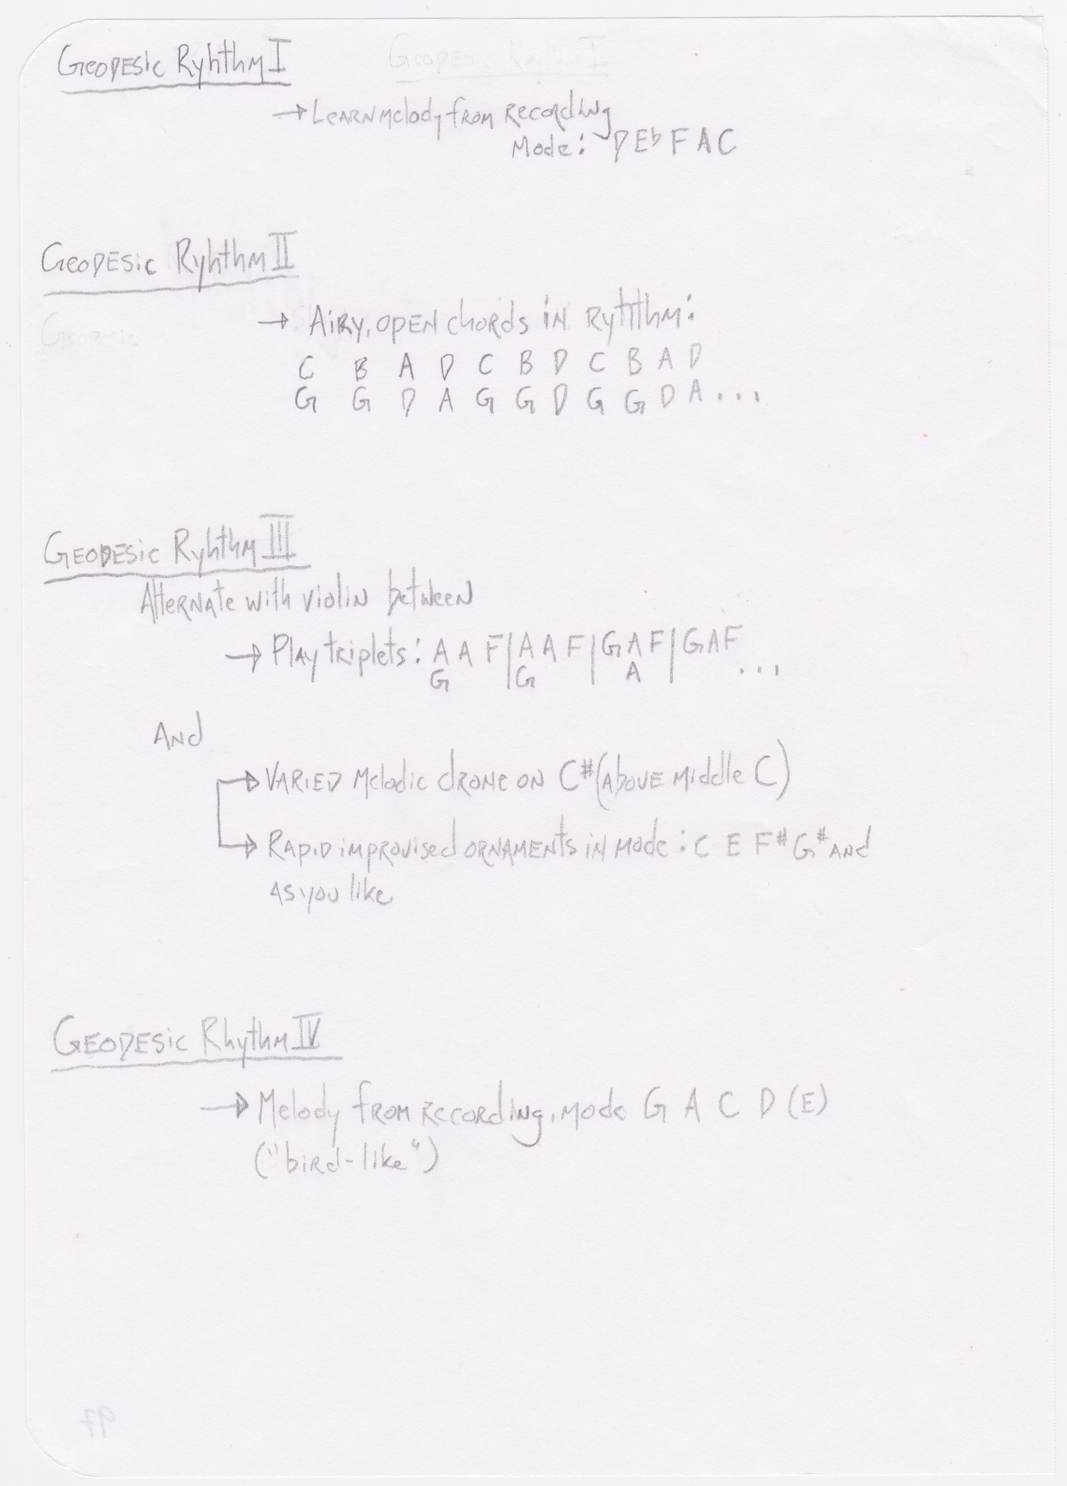 Geodesic Ryhthm I
→ Learn melody from recording
Mode: D E♭ F A C
Geodesic Ryhthm II
→ Airy, open chords in Rythhm:
C B A D C B D C B A D
G G D A G G D G G D A ...
Geodesic Ryhthm III
Alternate with violin between
→ Play triplets: A A F | A A F | G A F | G A F ...
G G A
And
→ Varied melodic drone on C# (above middle C)
→ Rapid improvised ornaments in mode: C E F# G# and
as you like
Geodesic Rhythm IV
→ Melody from recording, mode G A C D (E)
("bird-like")